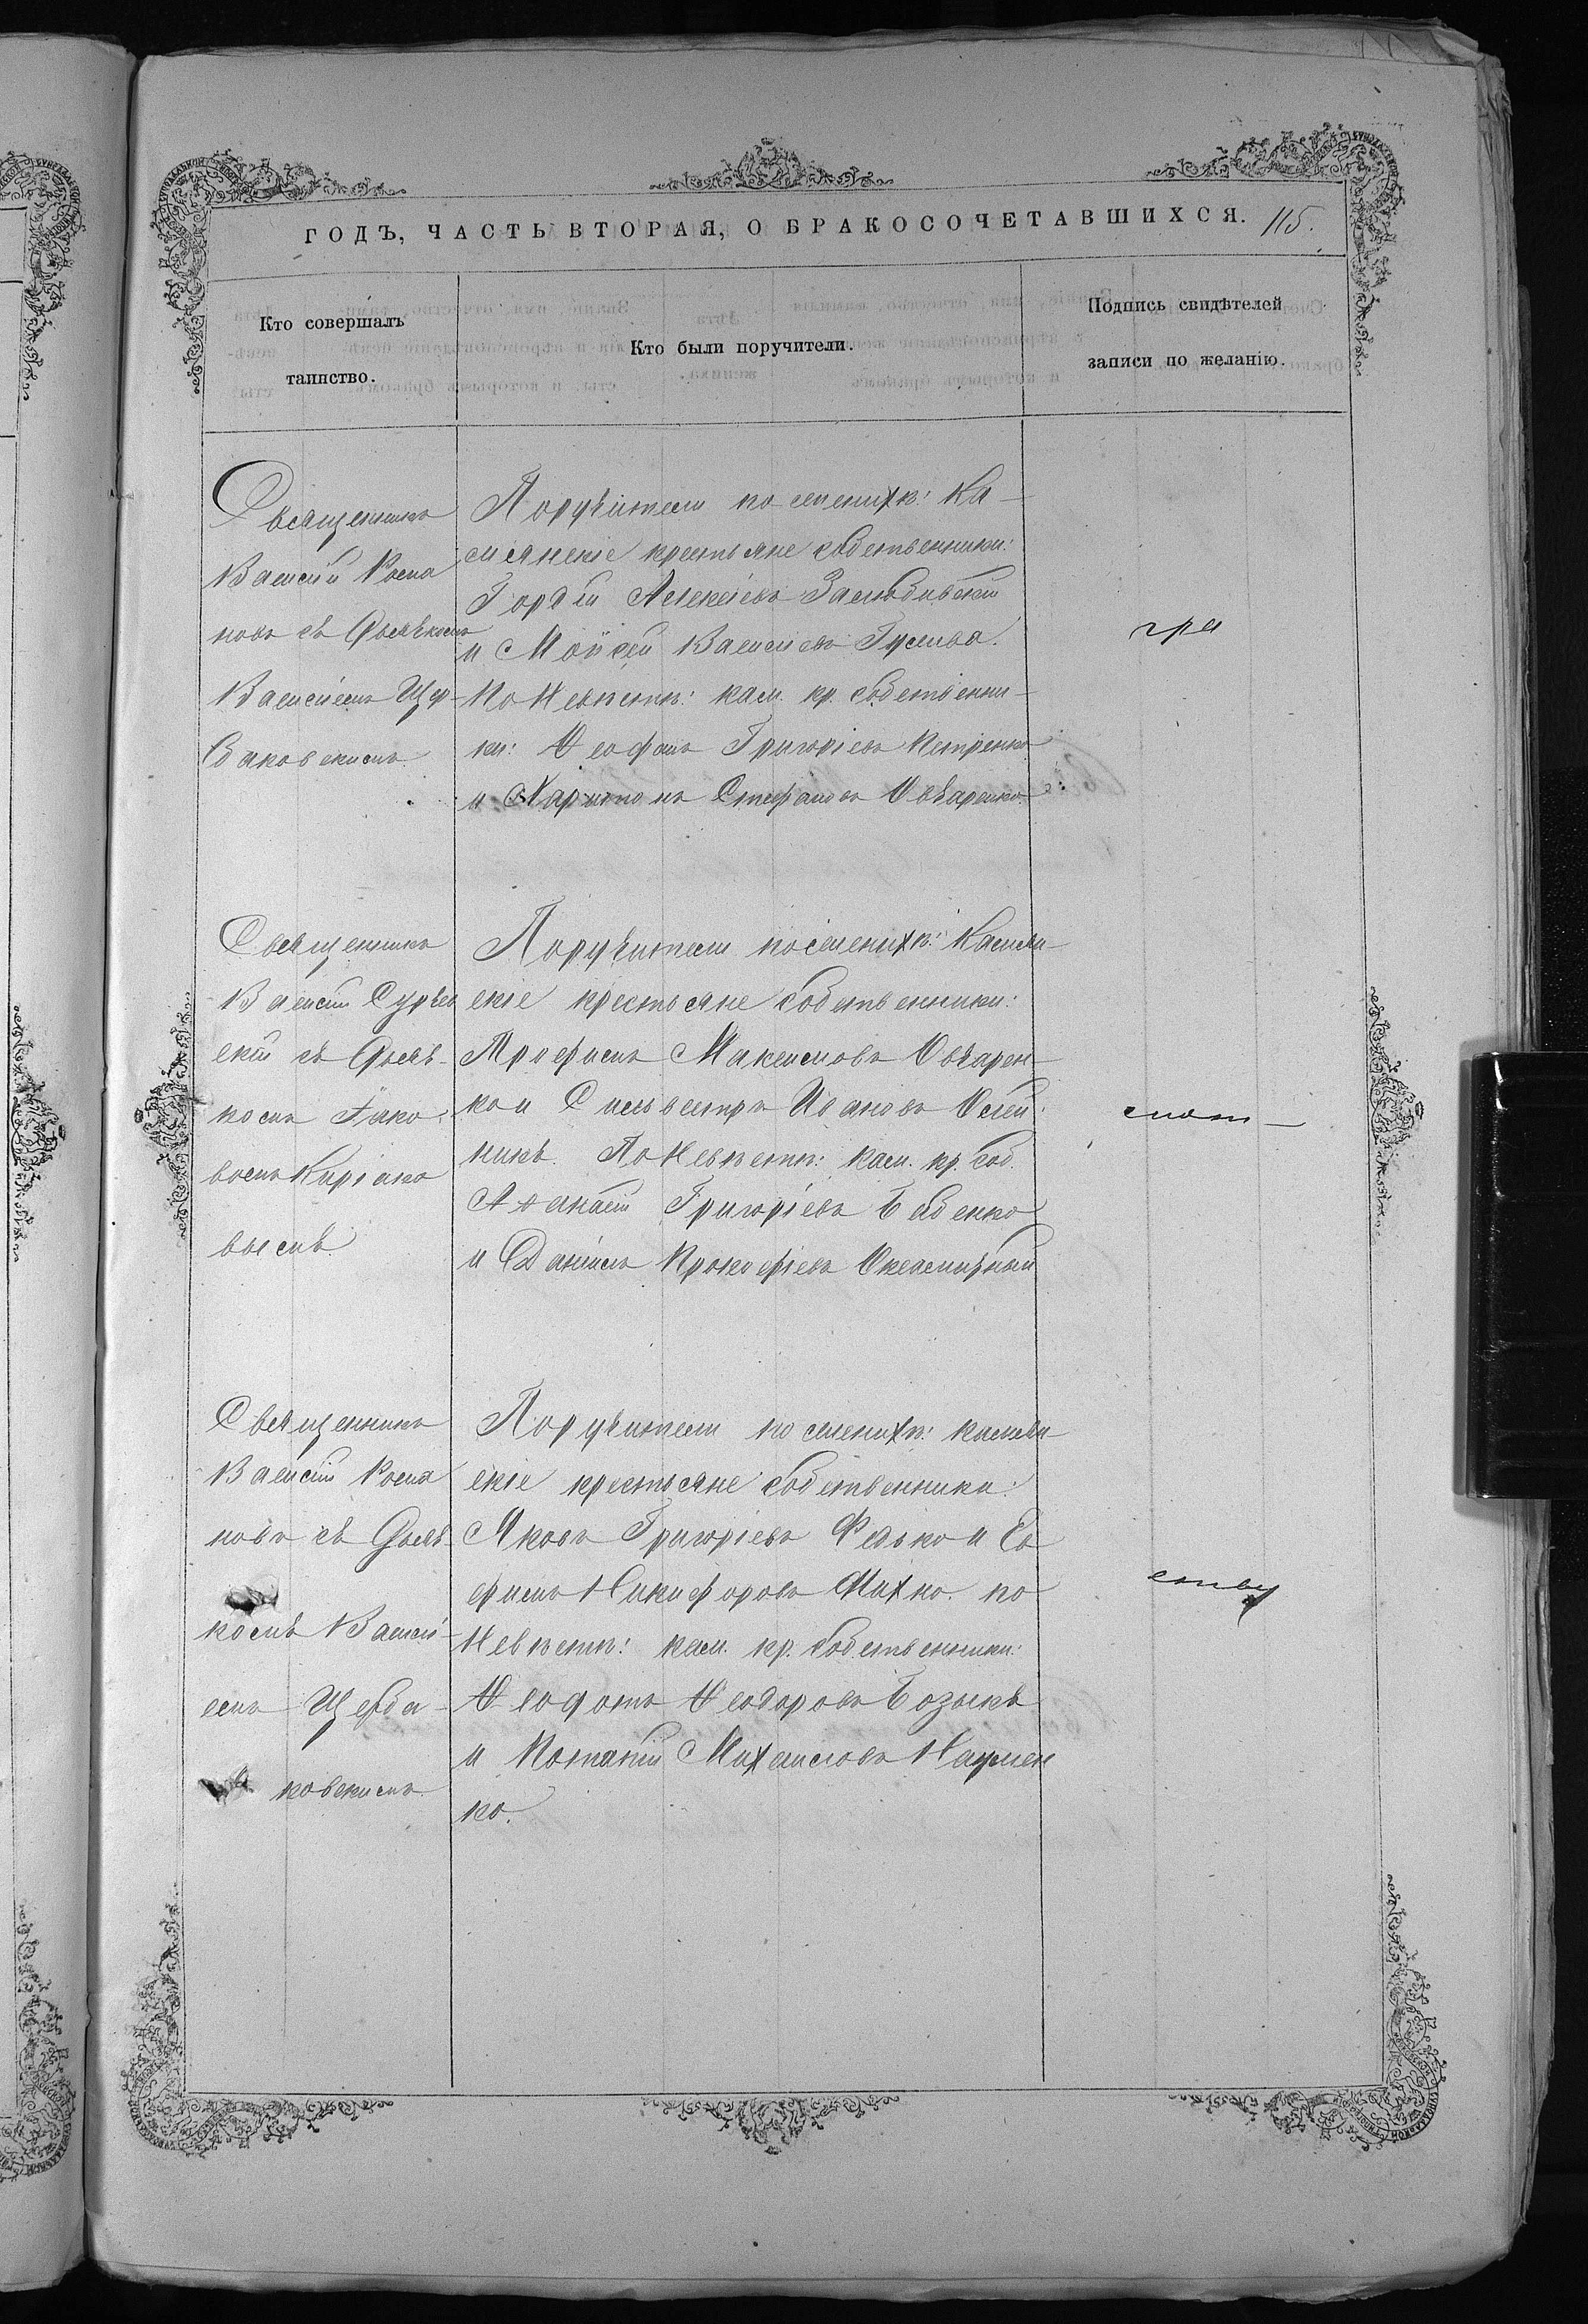 ГОДЪ, ЧАСТЬ ВТОРАЯ, О БРАКОСОЧЕТАВШИХСЯ. 115.
Кто совершалъ
таинство.
Кто были поручители.
Подпись свидѣтелей
записи по желанію.
Священникъ
Василій Рома
новъ съ Дьячкомъ
Василіемъ Щер-
баковскимъ.
Поручители по женихѣ: Ка-
мянскіе крестьяне собственники:
Гордій Алексѣевъ
и Моисей Василіевъ Гуслива.
По Невѣстѣ: кам. кр. собственни-
ки: Ѳеофанъ Григоріевъ Петренко
и Харитонъ Стефановъ Овчаренко.
гра
Священникъ
Василій
скій съ Дьяч-
комъ Іако-
вомъ Киріако
вымъ.
Поручители по женихѣ: Камян
скіе крестьяне собственники:
Трофимъ Максимовъ Овчарен-
ко и Сильвестръ Ивановъ Олей-
никъ. По Невѣстѣ: кам. кр. соб.
Аѳанасій Григоріевъ Бабенко
и Даніилъ Прокофіевъ
мот-
Священникъ
Василій Рома
новъ съ Дьяч-
комъ Василі-
емъ Щерба-
ковскимъ.
Поручители по женихѣ: камян
скіе крестьяне собственники:
Яковъ Григоріевъ Федько и Ев
фимъ Никифоровъ Михно. по
Невѣстѣ: кам. кр. собственники:
Ѳеофотъ Ѳеодоровъ Бозыкъ
и Потапій Михаиловъ Наумен
ко.
ству